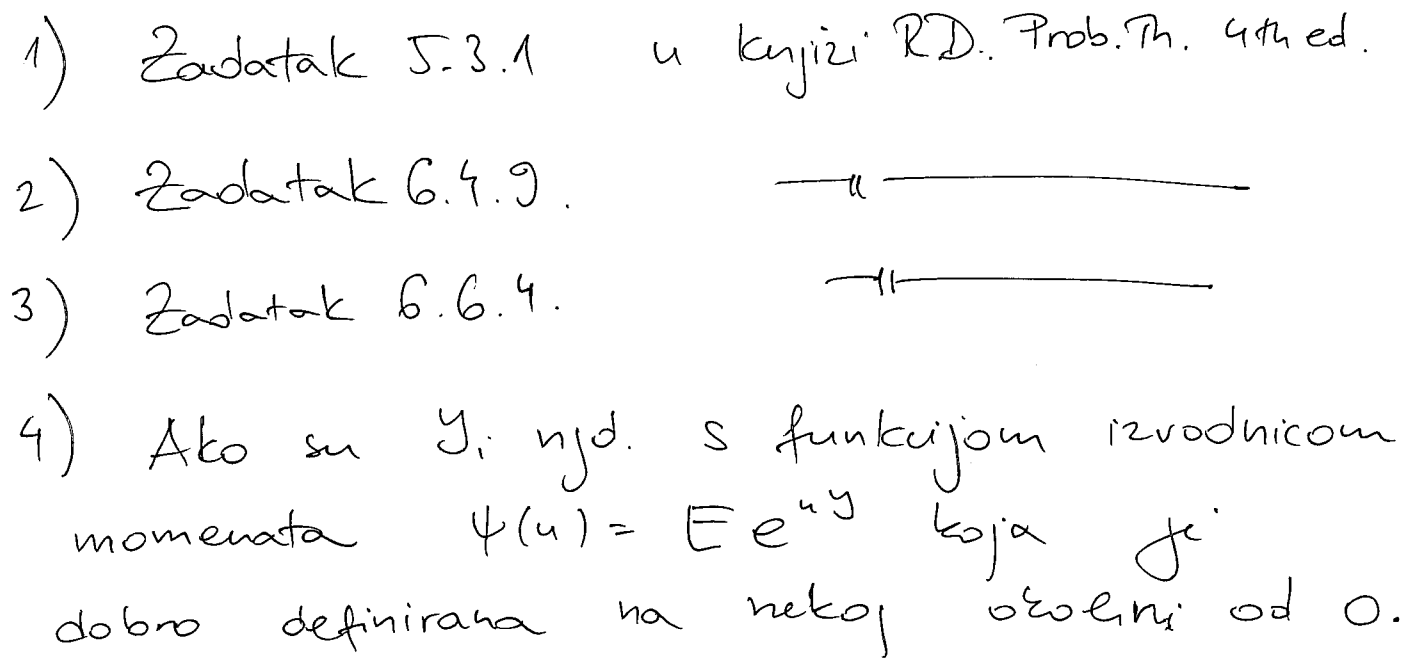 1) Zadatak 5.3.1 u knjizi RD. Prob. Th. 4th ed.
2) Zadatak 6.4.9. —"—
3) Zadatak 6.6.4. —"—
4) Ako su Y_i njd. s funkcijom izvodnicom
momenata ψ(u) = E e^{uY} koja je
dobro definirana na nekoj okolini od 0.